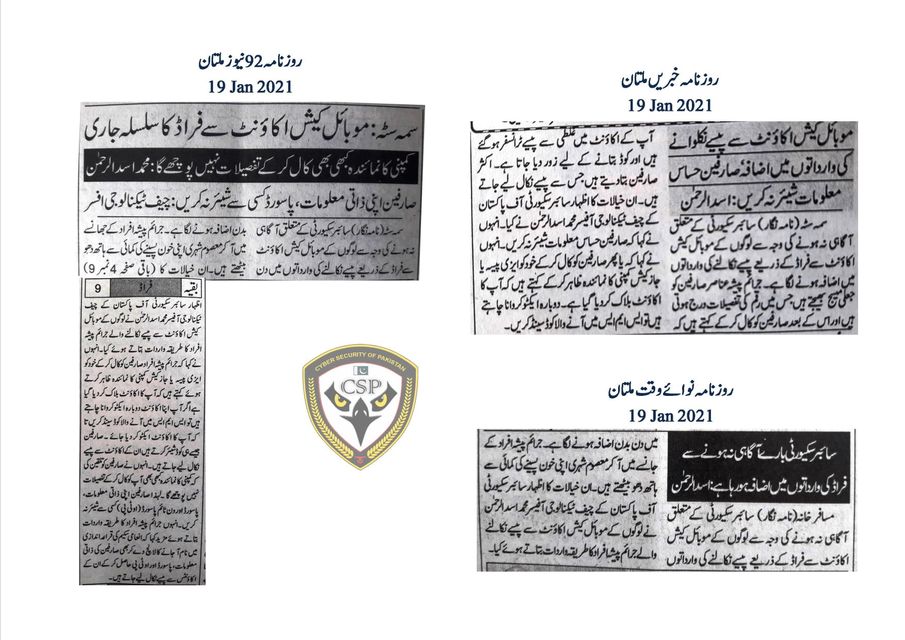 روزنامہ 92 نیوز ملتان
19 Jan 2021
سمہ سٹہ: موبائل کیش اکاؤنٹ سے فراڈ کا سلسلہ جاری
کمپنی کا نمائندہ کبھی بھی کال کر کے تفصیلات نہیں پوچھے گا: محمد اسد الرحمٰن
صارفین اپنی ذاتی معلومات، پاسورڈ کسی سے شیئر نہ کریں: چیف ٹیکنالوجی افسر
سمہ سٹہ (نامہ نگار) سائبر سکیورٹی کے متعلق آگاہی
نہ ہونے کی وجہ سے لوگوں کے موبائل کیش اکاؤنٹ
سے فراڈ کے ذریعے پیسے نکالنے کی وارداتوں میں دن
بدن اضافہ ہونے لگا ہے۔ جرائم پیشہ افراد کے جھانسے
میں آ کر معصوم شہری اپنی خون پسینے کی کمائی سے ہاتھ دھو
بیٹھتے ہیں۔ ان خیالات کا (باقی صفحہ 4 نمبر 9)
بقیہ فراڈ 9
اظہار سائبر سکیورٹی آف پاکستان کے چیف
ٹیکنالوجی آفیسر محمد اسد الرحمٰن نے لوگوں کے موبائل
کیش اکاؤنٹ سے پیسے نکالنے والے جرائم پیشہ
افراد کا طریقہ واردات بتاتے ہوئے کیا۔ انہوں
نے کہا کہ جرائم پیشہ افراد صارفین کو کال کر کے خود کو
ایزی پیسہ یا جاز کیش کمپنی کا نمائندہ ظاہر کرتے
ہوئے کہتے ہیں کہ آپ کا اکاؤنٹ بلاک کر دیا گیا
ہے اگر آپ اپنا اکاؤنٹ دوبارہ ایکٹو کروانا چاہتے
ہیں تو ایس ایم ایس میں آنے والا کوڈ سینڈ کریں تا
کہ آپ کا اکاؤنٹ ایکٹو کر دیا جائے۔ صارفین
جیسے ہی کوڈ شیئر کرتے ہیں ان کے اکاؤنٹ سے پیسے
نکال لیے جاتے ہیں۔ انہوں نے صارفین کو تلقین کی
کہ کمپنی کا نمائندہ کبھی بھی آپ کو کال کر کے تفصیلات
نہیں پوچھے گا۔ لہذا صارفین اپنی ذاتی معلومات،
پاسورڈ اور ون ٹائم پاسورڈ (او ٹی پی) کسی سے شیئر نہ
کریں۔ انہوں جرائم پیشہ افراد کا طریقہ واردات
بتاتے ہوئے مزید کہا کہ انعامی سکیم کی قرعہ اندازی
میں نام آ جانے کا لالچ دے کر بھی صارفین کی ذاتی
معلومات، پاسورڈ اور او ٹی پی حاصل کر کے ان کے
اکاؤنٹس سے پیسے نکال لیے جاتے ہیں۔
CYBER SECURITY OF PAKISTAN
CSP
روزنامہ خبریں ملتان
19 Jan 2021
موبائل کیش اکاؤنٹ سے پیسے نکلوانے
کی وارداتوں میں اضافہ صارفین حساس
معلومات شیئر نہ کریں: اسد الرحمن
سمہ سٹہ (نامہ نگار) سائبر سکیورٹی کے متعلق
آگاہی نہ ہونے کی وجہ سے لوگوں کے موبائل کیش
اکاؤنٹ سے فراڈ کے ذریعے پیسے نکالنے کی وارداتوں
میں اضافہ ہونے لگا ہے۔ جرائم پیشہ عناصر صارفین کو
جعلی میسج بھیجتے ہیں جس میں رقم کی تفصیلات درج ہوتی
ہیں اور اس کے بعد صارفین کو کال کر کے کہتے ہیں کہ
آپ کے اکاؤنٹ میں غلطی سے پیسے ٹرانسفر ہو گئے
ہیں اور کوڈ بتانے کے لیے زور دیا جاتا ہے۔ اکثر
صارفین بتا دیتے ہیں جس سے پیسے نکال لیے جاتے
ہیں۔ ان خیالات کا اظہار سائبر سکیورٹی آف پاکستان
کے چیف ٹیکنالوجی آفیسر محمد اسد الرحمٰن نے کیا۔ انہوں
نے کہا کہ صارفین حساس معلومات شیئر نہ کریں۔ انہوں
نے کہا کہ یا پھر صارفین کو کال کر کے خود کو ایزی پیسہ یا
جاز کیش کمپنی کا نمائندہ ظاہر کر کے کہتے ہیں کہ آپ کا
اکاؤنٹ بلاک کر دیا گیا ہے۔ دوبارہ ایکٹو کروانا چاہتے
ہیں تو ایس ایم ایس میں آنے والا کوڈ سینڈ کریں۔
روزنامہ نوائے وقت ملتان
19 Jan 2021
سائبر سکیورٹی بارے آگاہی نہ ہونے سے
فراڈ کی وارداتوں میں اضافہ ہو رہا ہے: اسد الرحمٰن
مسافر خانہ (نامہ نگار) سائبر سکیورٹی کے متعلق
آگاہی نہ ہونے کی وجہ سے لوگوں کے موبائل کیش
اکاؤنٹ سے فراڈ کے ذریعے پیسے نکالنے کی وارداتوں
میں دن بدن اضافہ ہونے لگا ہے۔ جرائم پیشہ افراد کے
جانسے میں آ کر معصوم شہری اپنی خون پسینے کی کمائی سے
ہاتھ دھو بیٹھتے ہیں۔ ان خیالات کا اظہار سائبر سکیورٹی
آف پاکستان کے چیف ٹیکنالوجی آفیسر محمد اسد الرحمٰن
نے لوگوں کے موبائل کیش اکاؤنٹ سے پیسے نکالنے
والے جرائم پیشہ افراد کا طریقہ واردات بتاتے ہوئے کیا۔